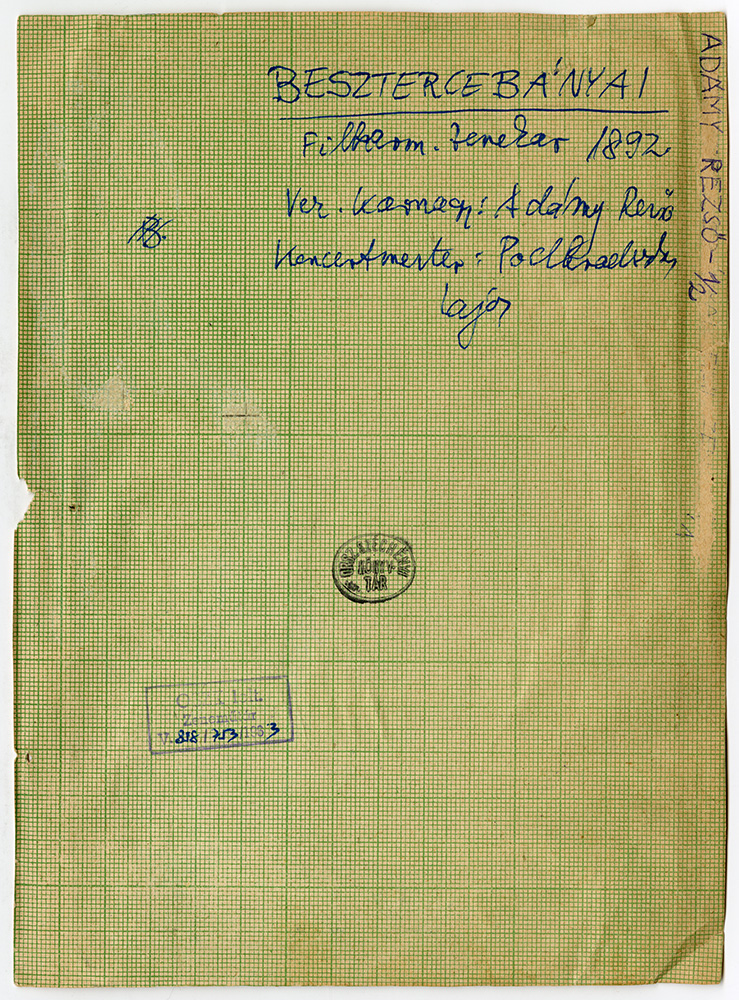 BESZTERCEBÁNYAI
Filharm. zenekar 1892.
Vez. Karnagy: Adámy Rezső
Koncertmester: Podhradszky
Lajos
ADÁMY REZSŐ - 1/2
ORSZ. SZÉCHÉNYI
KÖNYV-
TÁR
Zeneműtár
V. 818/753/1983